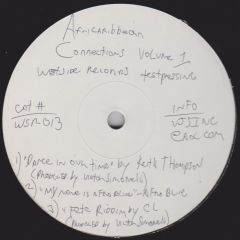 Africaribbean
Connections Volume 1
Westside Records testpressing
Cat #
WSR013
INFO
WJJING
@AOL.COM
1) "Dance in our time" by Keith Thompson
(Produced by Victor Simonelli)
2) "My name is Afro Blue" - Afro Blue
3) Riddim by CL
(Produced by Victor Simonelli)